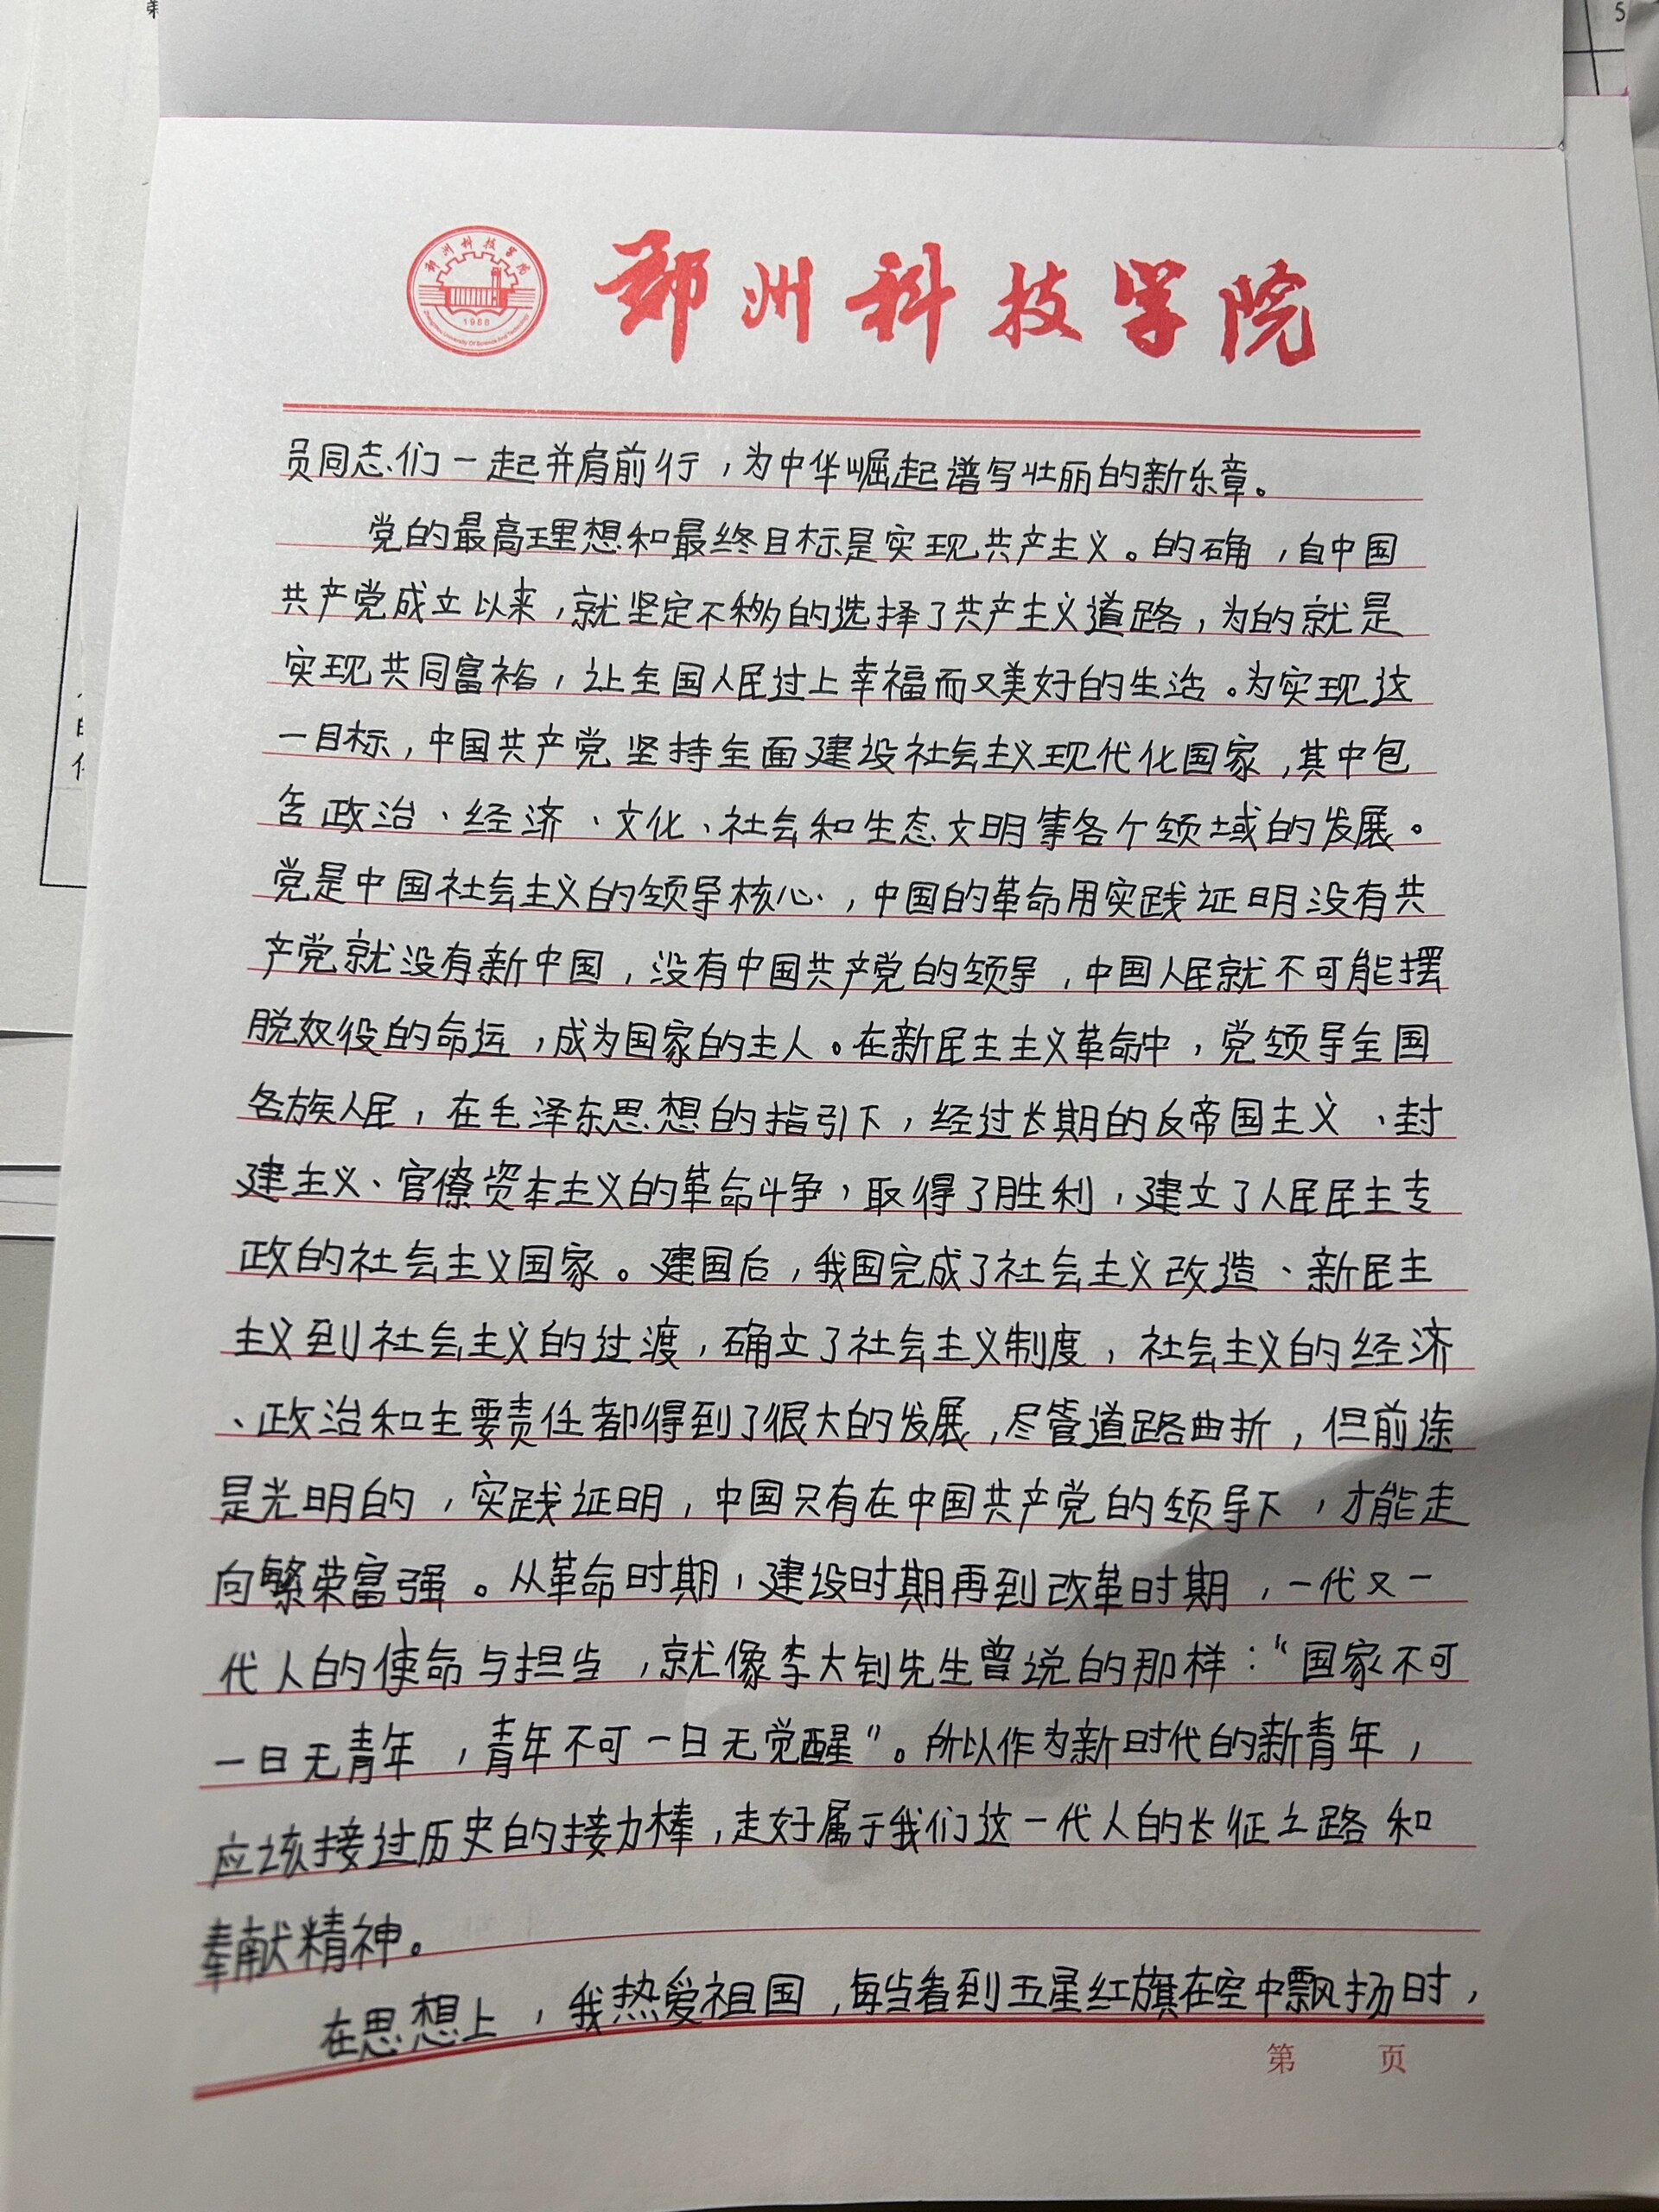 郑州科技学院
1988
员同志们一起并肩前行，为中华崛起谱写壮丽的新乐章。
党的最高理想和最终目标是实现共产主义。的确，自中国
共产党成立以来，就坚定不移的选择了共产主义道路，为的就是
实现共同富裕，让全国人民过上幸福而又美好的生活。为实现这
一目标，中国共产党坚持全面建设社会主义现代化国家，其中包
含政治、经济、文化、社会和生态文明等各个领域的发展。
党是中国社会主义的领导核心，中国的革命用实践证明没有共
产党就没有新中国，没有中国共产党的领导，中国人民就不可能摆
脱奴役的命运，成为国家的主人。在新民主主义革命中，党领导全国
各族人民，在毛泽东思想的指引下，经过长期的反帝国主义、封
建主义、官僚资本主义的革命斗争，取得了胜利，建立了人民民主专
政的社会主义国家。建国后，我国完成了社会主义改造、新民主
主义到社会主义的过渡，确立了社会主义制度，社会主义的经济
、政治和主要责任都得到了很大的发展，尽管道路曲折，但前途
是光明的，实践证明，中国只有在中国共产党的领导下，才能走
向繁荣富强。从革命时期，建设时期再到改革时期，一代又一
代人的使命与担当，就像李大钊先生曾说的那样：“国家不可
一日无青年，青年不可一日无觉醒”。所以作为新时代的新青年，
应该接过历史的接力棒，走好属于我们这一代人的长征之路和
奉献精神。
在思想上，我热爱祖国，每当看到五星红旗在空中飘扬时，
第 页